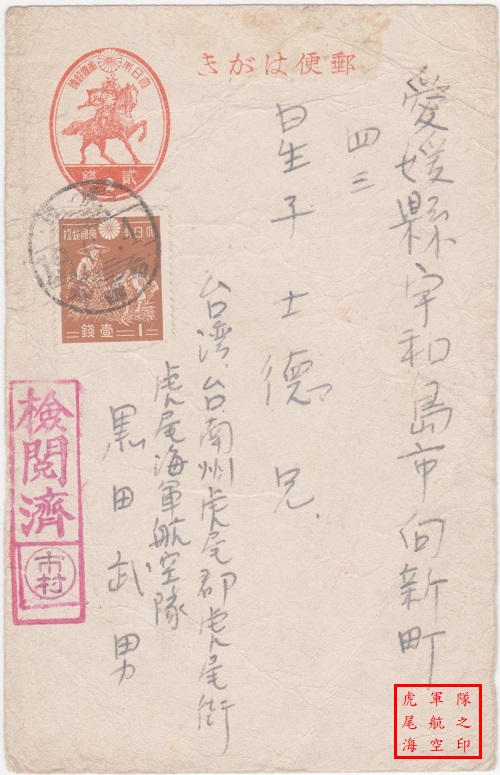 郵便はがき
大日本帝國郵便
貳錢
大日本帝國郵便
壹錢
1
愛媛縣宇和島市向新町
四三
星子士徳兄
台湾、台南州虎尾郡虎尾街
虎尾海軍航空隊
黒田武男
検閲濟
市村
虎尾海
軍航空
隊之印